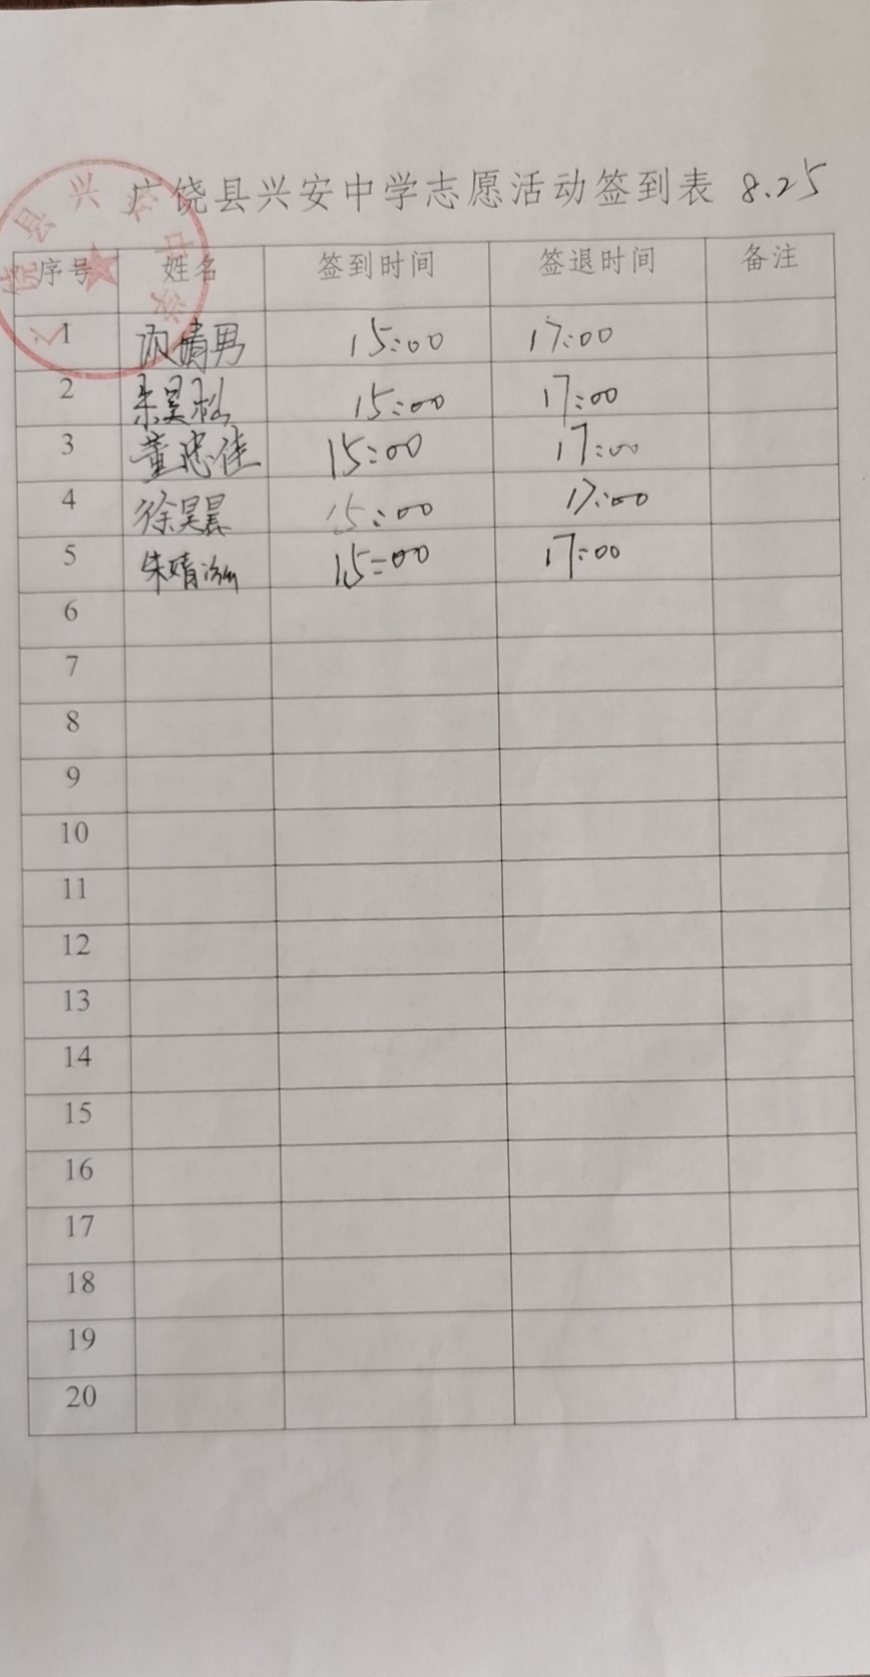 广饶县兴安中学志愿活动签到表 8.25
序号 姓名 签到时间 签退时间 备注
1 婧男 15:00 17:00
2 朱昊松 15:00 17:00
3 董忠佳 15:00 17:00
4 徐昊晨 15:00 17:00
5 朱婧泓 15:00 17:00
6
7
8
9
10
11
12
13
14
15
16
17
18
19
20